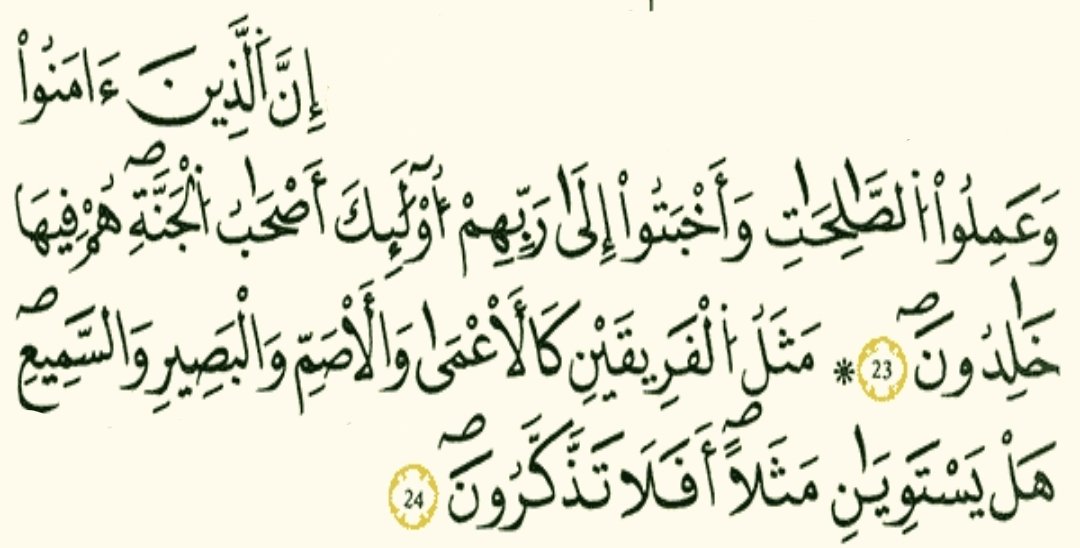 إِنَّ اَ۬لذِينَ ءَامَنُواْ
وَعَمِلُواْ اُ۬لصَّٰلِحَٰتِ وَأَخْبَتُوٓاْ إِلَىٰ رَبِّهِمْۖ أُوْلَٰٓئِكَ أَصْحَٰبُ اُ۬لْجَنَّةِۖ هُمْ فِيهَا
خَٰلِدُونَۖ 23 ۞ مَثَلُ اُ۬لْفَرِيقَيْنِ كَالَاعْمَىٰ وَالَاصَمِّ وَالْبَصِيرِ وَالسَّمِيعِۖ
هَلْ يَسْتَوِيَٰنِ مَثَلاًۖ أَفَلَا تَذَّكَّرُونَۖ 24